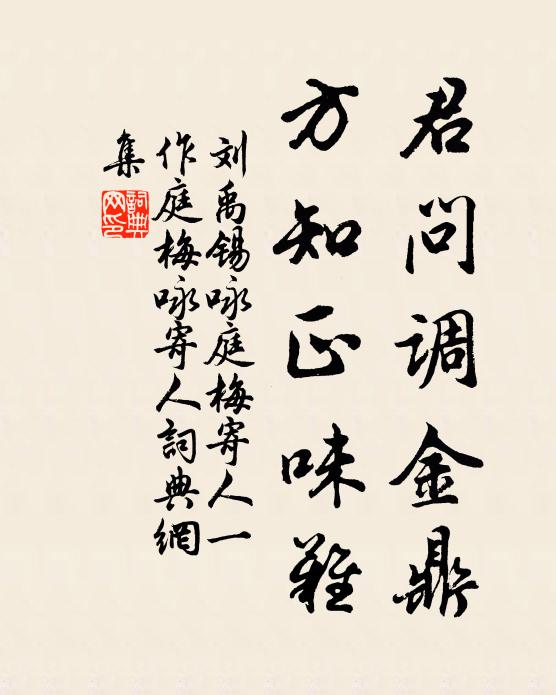 君问调金鼎
方知正味难
刘禹锡咏庭梅寄人一
作庭梅咏寄人词典網
集
詞典
网印